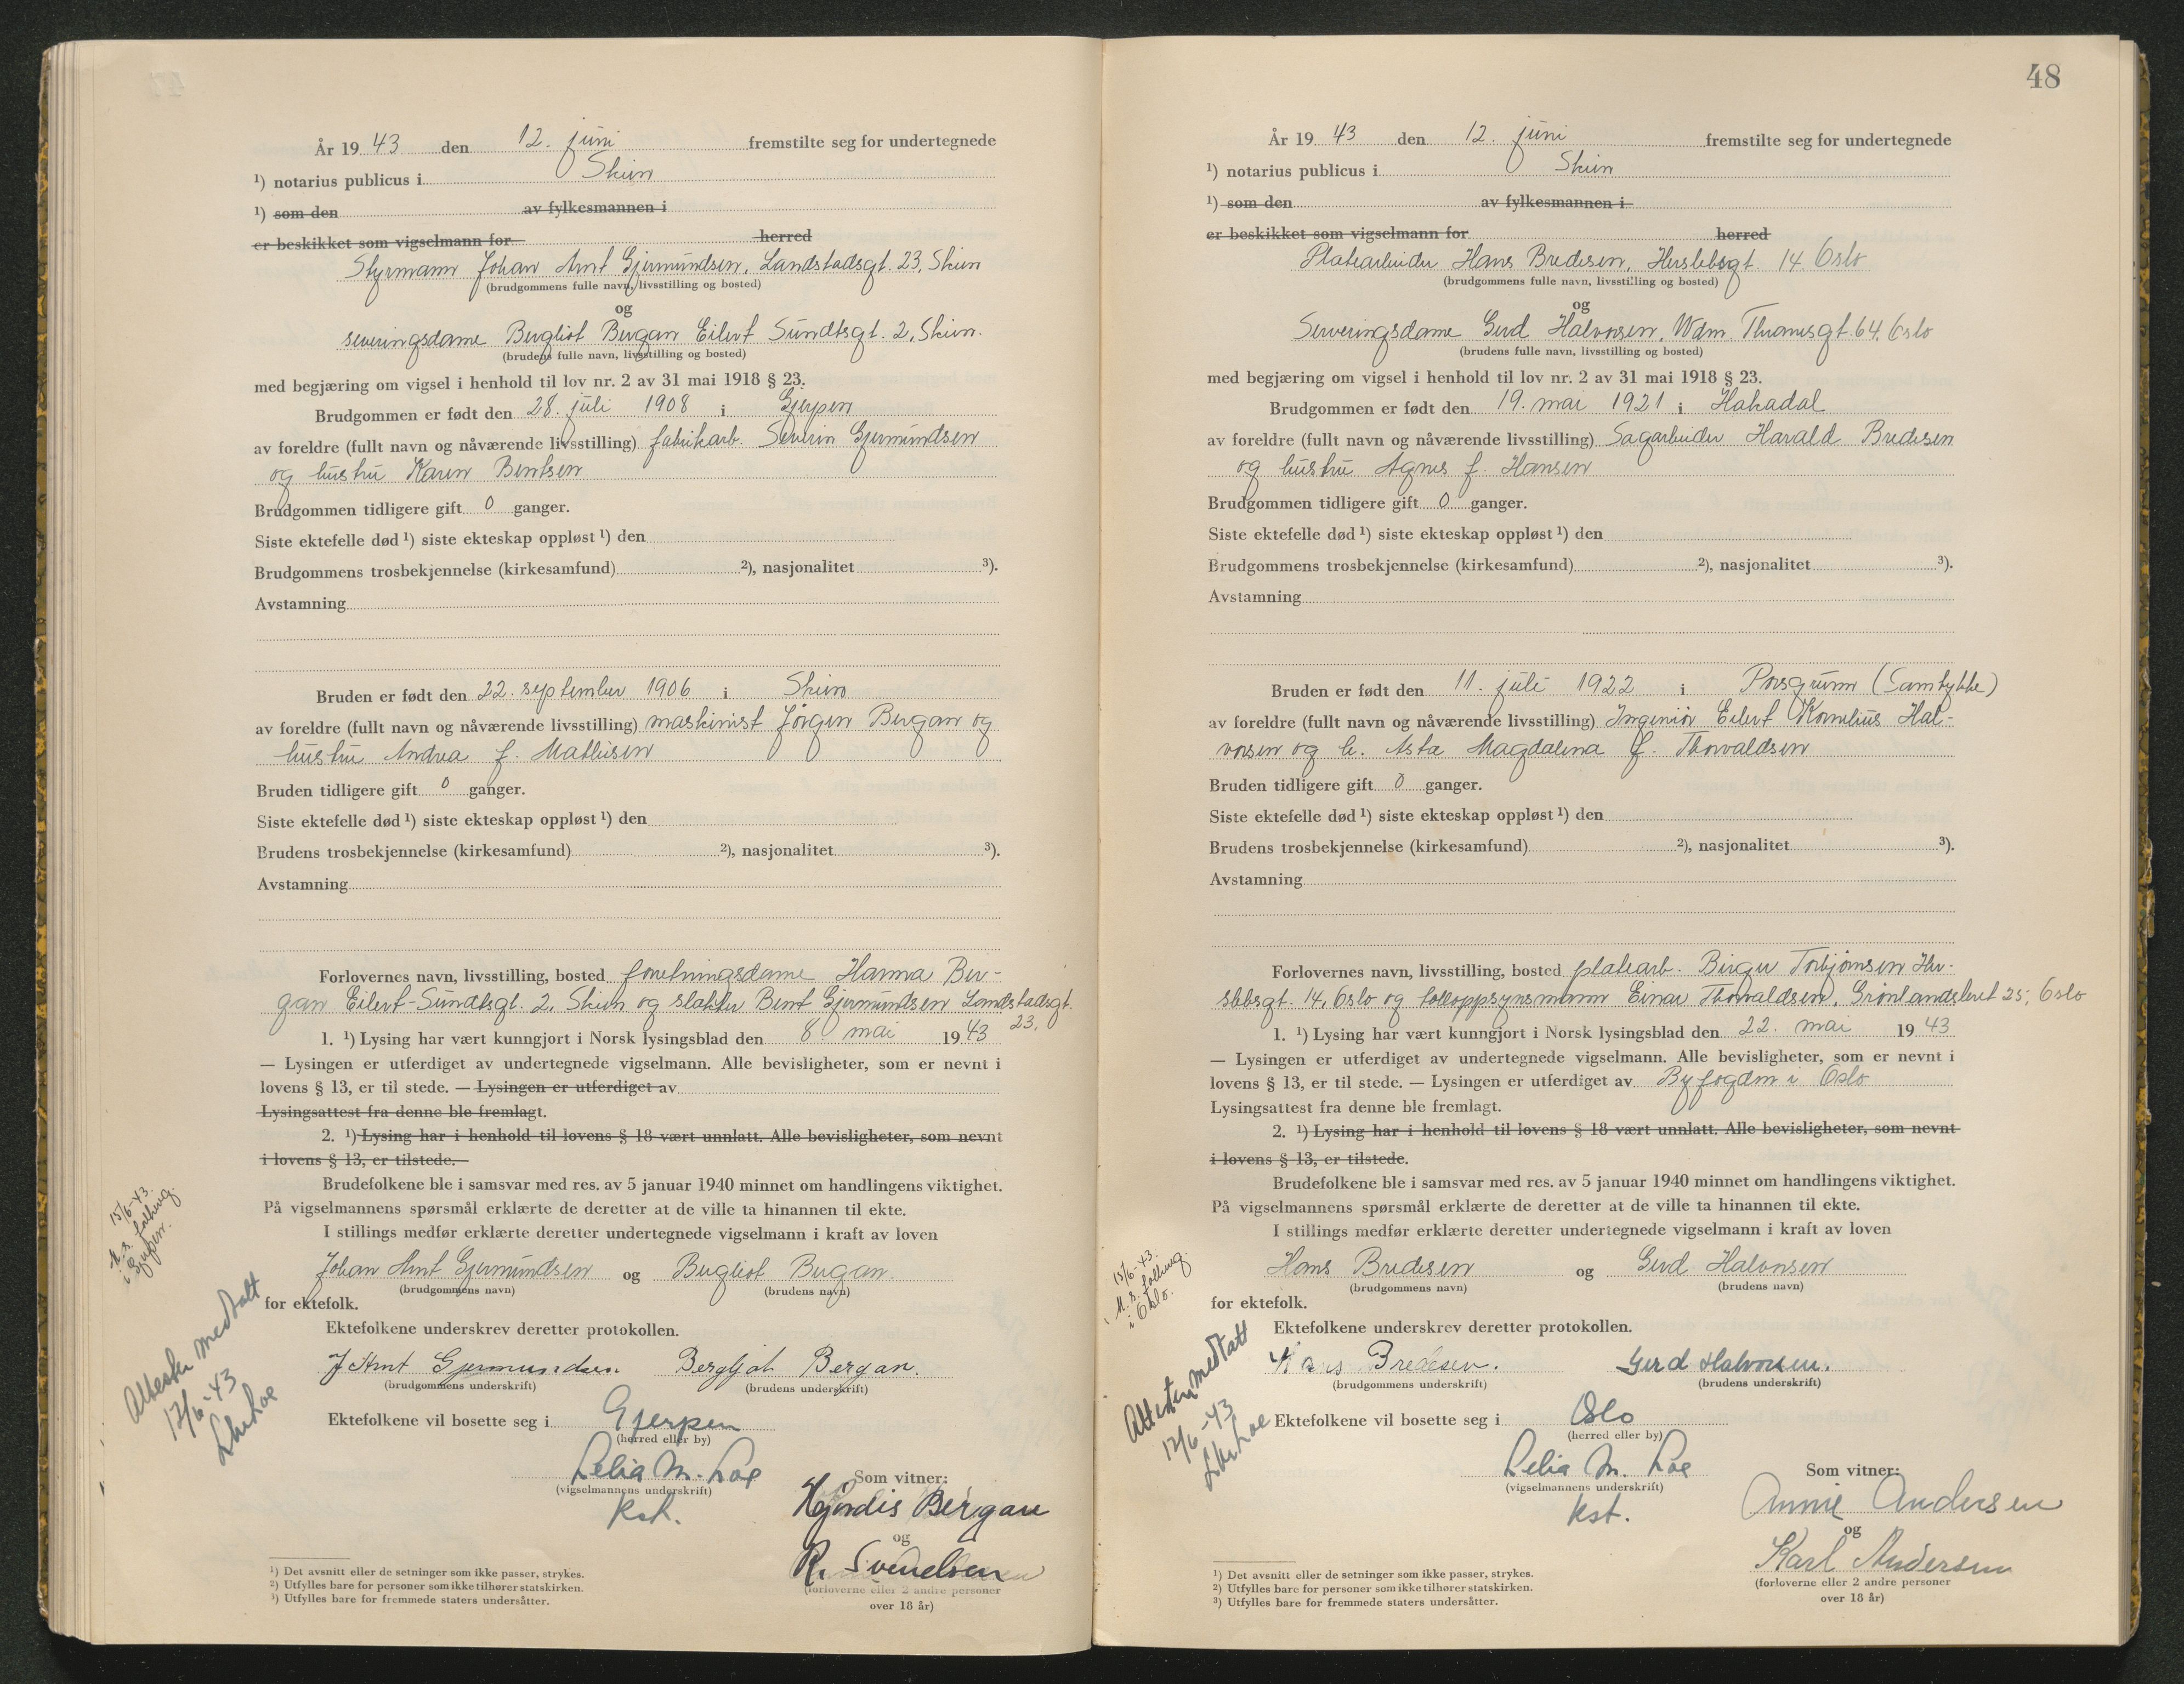 År 19 43 den 12. juni fremstilte seg for undertegnede
¹) notarius publicus i Skien
¹) som den av fylkesmannen i
er beskikket som vigselmann for herred
Styrmann Johan Arnt Gjermundsen, Landstadsgt. 23, Skien
(brudgommens fulle navn, livsstilling og bosted)
og
serveringsdame Bergliot Bergan Eilert Sundtsgt. 2, Skien.
(brudens fulle navn, livsstilling og bosted)
med begjæring om vigsel i henhold til lov nr. 2 av 31 mai 1918 § 23.
Brudgommen er født den 28. juli 1908 i Gjerpen
av foreldre (fullt navn og nåværende livsstilling) fabrikarb. Severin Gjermundsen
og hustru Karen Bentsen
Brudgommen tidligere gift 0 ganger.
Siste ektefelle død ¹) siste ekteskap oppløst ¹) den
Brudgommens trosbekjennelse (kirkesamfund) ²), nasjonalitet ³).
Avstamning
Bruden er født den 22. september 1906 i Skien
av foreldre (fullt navn og nåværende livsstilling) maskinist Jörgen Bergan og
hustru Andrea f. Mathisen
Bruden tidligere gift 0 ganger.
Siste ektefelle død ¹) siste ekteskap oppløst ¹) den
Brudens trosbekjennelse (kirkesamfund) ²), nasjonalitet ³).
Avstamning
Forlovernes navn, livsstilling, bosted forretningsdame Hanna Ber-
gan Eilert-Sundtsgt. 2, Skien og slakter Bent Gjermundsen Landstadsgt.
23,
1. ¹) Lysing har vært kunngjort i Norsk lysingsblad den 8 mai 19 43
— Lysingen er utferdiget av undertegnede vigselmann. Alle bevisligheter, som er nevnt i
lovens § 13, er til stede. — Lysingen er utferdiget av
Lysingsattest fra denne ble fremlagt.
2. ¹) Lysing har i henhold til lovens § 18 vært unnlatt. Alle bevisligheter, som nevnt
i lovens § 13, er tilstede.
Brudefolkene ble i samsvar med res. av 5 januar 1940 minnet om handlingens viktighet.
På vigselmannens spørsmål erklærte de deretter at de ville ta hinannen til ekte.
I stillings medfør erklærte deretter undertegnede vigselmann i kraft av loven
15/6-43.
M.s. folkereg.
i Gjerpen.
Johan Arnt Gjermundsen og Bergliot Bergan.
(brudgommens navn) (brudens navn)
for ektefolk.
Ektefolkene underskrev deretter protokollen.
J Arnt Gjermundsen. Bergljot Bergan.
(brudgommens underskrift) (brudens underskrift)
Attester medtatt
12/6-43
Ektefolkene vil bosette seg i Gjerpen
(herred eller by)
Lelia M. Loe
(vigselmannens underskrift)
kst.
Som vitner:
Hjördis Bergan
og
R. Svendsen
(forloverne eller 2 andre personer
over 18 år)
¹) Det avsnitt eller de setninger som ikke passer, strykes.
²) Utfylles bare for personer som ikke tilhører statskirken.
³) Utfylles bare for fremmede staters undersåtter.
48
År 19 43 den 12. juni fremstilte seg for undertegnede
¹) notarius publicus i Skien
¹) som den av fylkesmannen i
er beskikket som vigselmann for herred
Platearbeider Hans Bredesen, Herslebsgt. 14 Oslo
(brudgommens fulle navn, livsstilling og bosted)
og
Serveringsdame Gerd Halvorsen, Wdm. Thranesgt. 64, Oslo
(brudens fulle navn, livsstilling og bosted)
med begjæring om vigsel i henhold til lov nr. 2 av 31 mai 1918 § 23.
Brudgommen er født den 19. mai 1921 i Hakadal
av foreldre (fullt navn og nåværende livsstilling) Sagarbeider Harald Bredesen
og hustru Agnes f. Hansen
Brudgommen tidligere gift 0 ganger.
Siste ektefelle død ¹) siste ekteskap oppløst ¹) den
Brudgommens trosbekjennelse (kirkesamfund) ²), nasjonalitet ³).
Avstamning
Bruden er født den 11. juli 1922 i Porsgrunn (Samtykke)
av foreldre (fullt navn og nåværende livsstilling) Ingeniör Eilert Kornelius Hal-
vorsen og h. Asta Magdalena f. Thorvaldsen
Bruden tidligere gift 0 ganger.
Siste ektefelle død ¹) siste ekteskap oppløst ¹) den
Brudens trosbekjennelse (kirkesamfund) ²), nasjonalitet ³).
Avstamning
Forlovernes navn, livsstilling, bosted platearb. Birger Torbjörnsen Her-
slebsgt. 14, Oslo og tolloppsynsmann Einar Thorvaldsen, Grönlandsleret 25, Oslo
1. ¹) Lysing har vært kunngjort i Norsk lysingsblad den 22. mai 19 43
— Lysingen er utferdiget av undertegnede vigselmann. Alle bevisligheter, som er nevnt i
lovens § 13, er til stede. — Lysingen er utferdiget av Byfogden i Oslo
Lysingsattest fra denne ble fremlagt.
2. ¹) Lysing har i henhold til lovens § 18 vært unnlatt. Alle bevisligheter, som nevnt
i lovens § 13, er tilstede.
Brudefolkene ble i samsvar med res. av 5 januar 1940 minnet om handlingens viktighet.
På vigselmannens spørsmål erklærte de deretter at de ville ta hinannen til ekte.
I stillings medfør erklærte deretter undertegnede vigselmann i kraft av loven
15/6-43.
M.s. folkereg.
i Oslo.
Hans Bredesen og Gerd Halvorsen
(brudgommens navn) (brudens navn)
for ektefolk.
Ektefolkene underskrev deretter protokollen.
Hans Bredesen. Gerd Halvorsen.
(brudgommens underskrift) (brudens underskrift)
Attester medtatt
12/6-43
Ektefolkene vil bosette seg i Oslo
(herred eller by)
Lelia M. Loe
(vigselmannens underskrift)
kst.
Som vitner:
Annie Andersen
og
Karl Andersen
(forloverne eller 2 andre personer
over 18 år)
¹) Det avsnitt eller de setninger som ikke passer, strykes.
²) Utfylles bare for personer som ikke tilhører statskirken.
³) Utfylles bare for fremmede staters undersåtter.